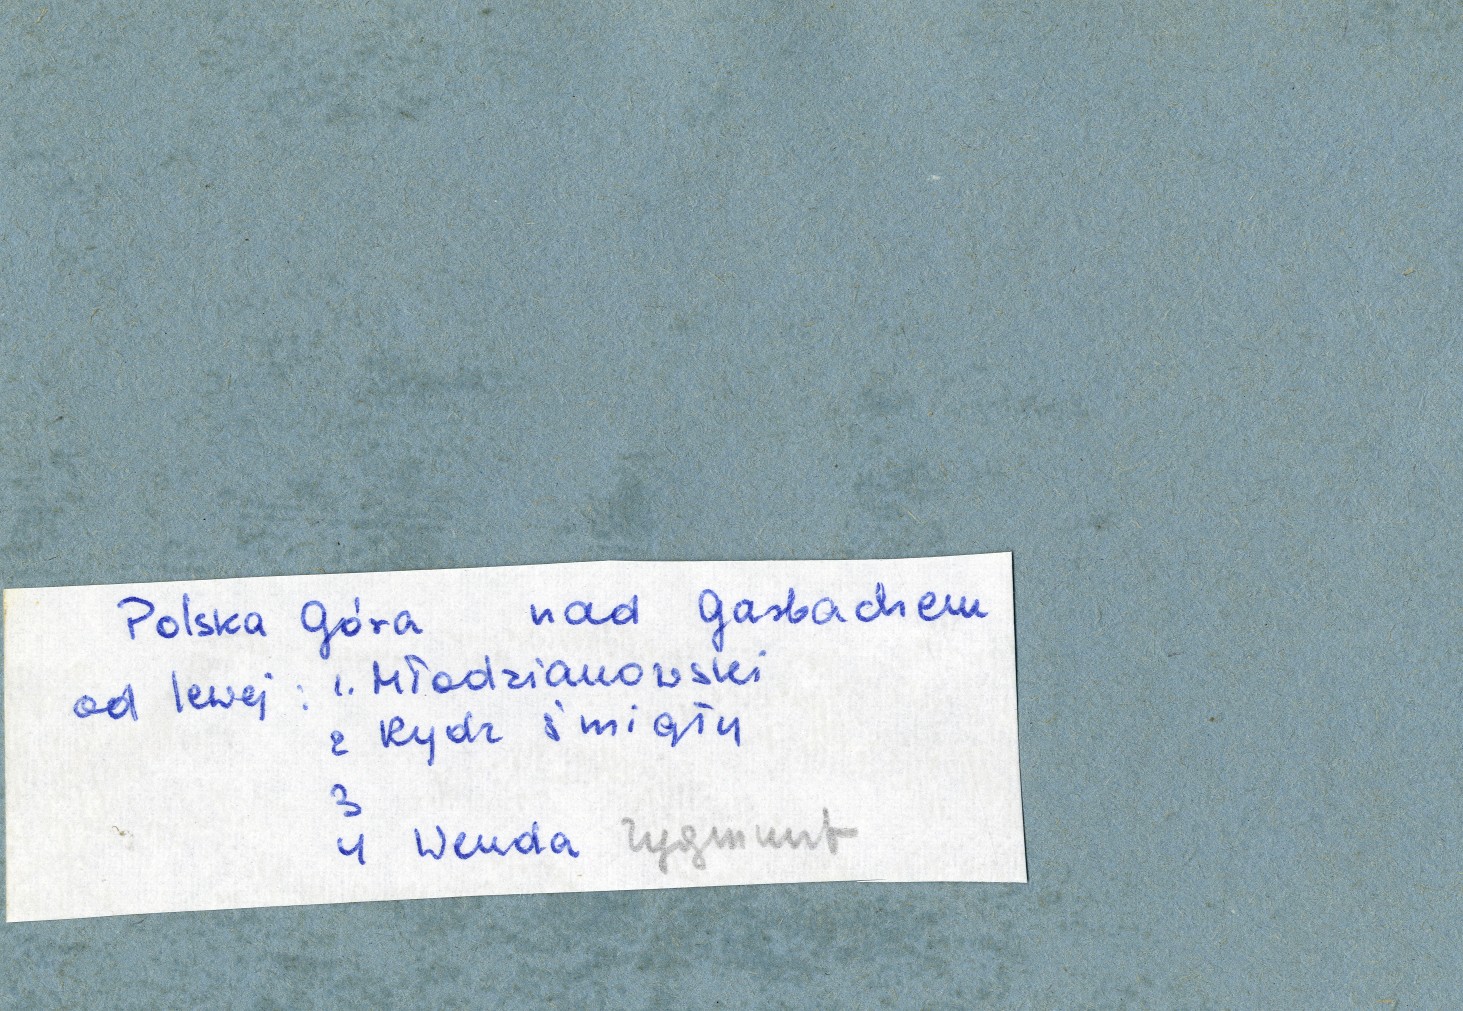 Polska Góra nad Garbachem
od lewej: 1. Młodzianowski
2 Rydz Śmigły
3
4 Wenda Zygmunt